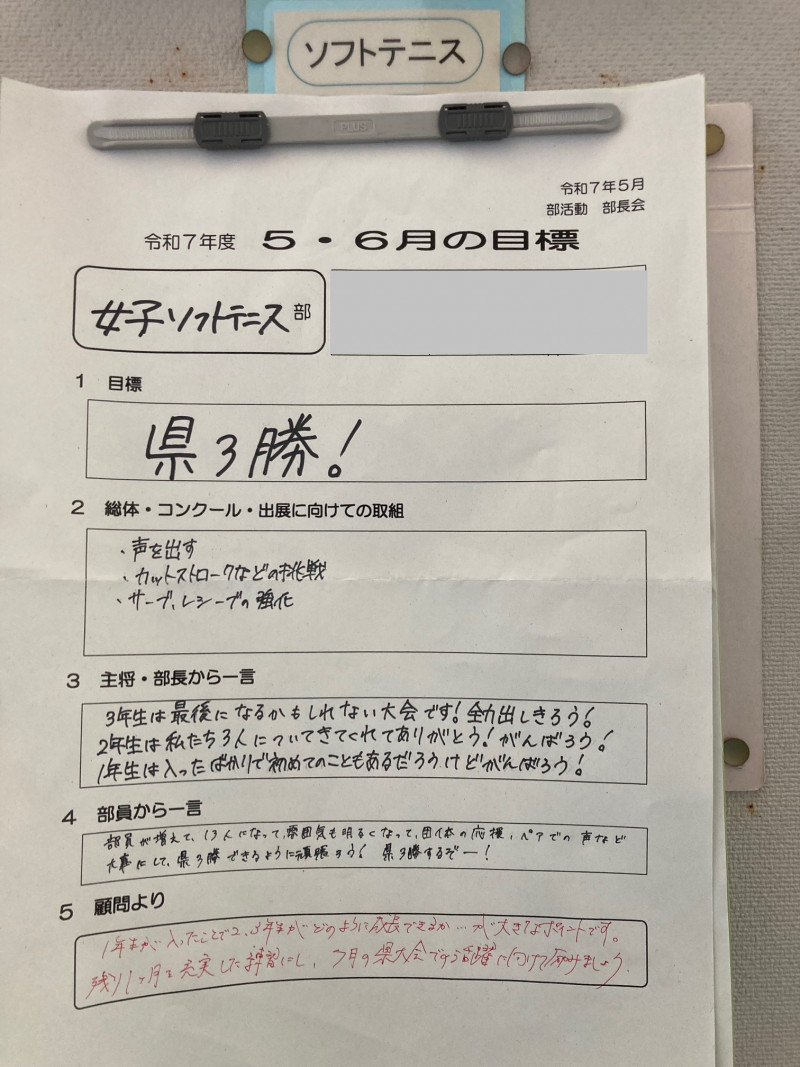 ソフトテニス
PLUS
令和7年5月
部活動 部長会
令和7年度 5・6月の目標
女子ソフトテニス部
1 目標
県3勝!
2 総体・コンクール・出展に向けての取組
・声を出す
・カットストロークなどの挑戦
・サーブ、レシーブの強化
3 主将・部長から一言
3年生は最後になるかもしれない大会です!全力出しきろう!
2年生は私たち3人についてきてくれてありがとう!がんばろう!
1年生は入ったばかりで初めてのこともあるだろうけどがんばろう!
4 部員から一言
部員が増えて、13人になって、雰囲気も明るくなって、団体の応援、ペアでの声など
大事にして、県3勝できるように頑張ろう! 県3勝するぞー!
5 顧問より
1年生が入ったことで2、3年生がどのように成長できるか…が大きなポイントです。
残り1ヶ月を充実した練習にし、7月の県大会での活躍に向けて励みましょう。